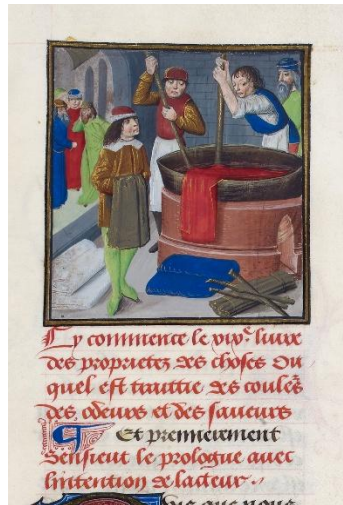 Cy commence le xix.e liure
des proprietez des choses Ou
quel est traittie des coulés
des odeurs et des saueurs
Et premierement
Sensieut le prologue auec
lintention de lacteur.
que nous